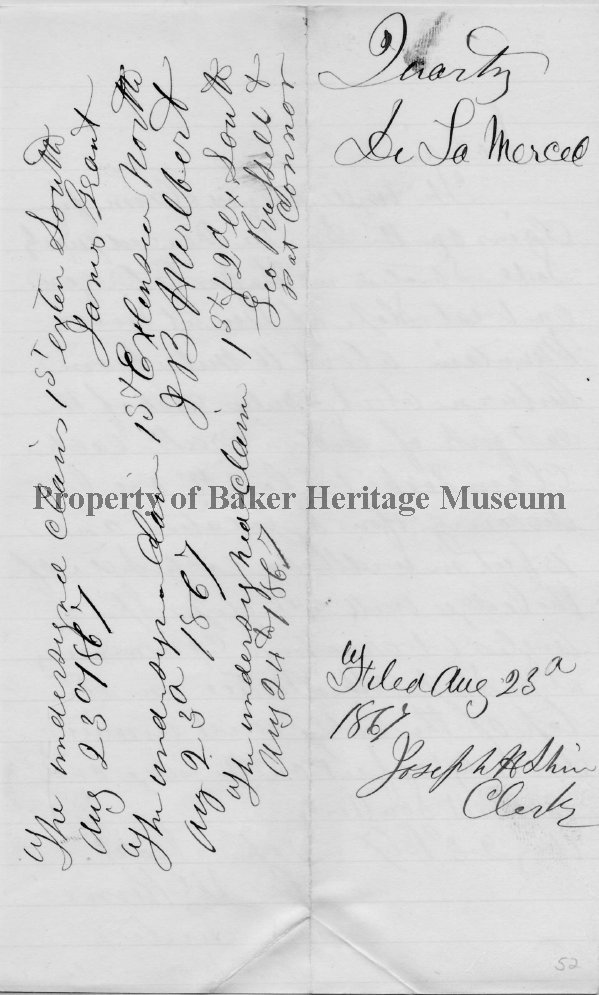 Quartz
De La Merced
Filed Aug 23d
1867
Joseph H Shinn
Clerk
The undersigned claims 1st exten South
Aug 23d 1867 James Grant
The undersigned claim 1st Extension North
Aug 23d 1867 J B Hurlbert
The undersigned claim 1st & 2d ex. South
Aug 24th 1867 Geo Russell &
Pat Connor
Property of Baker Heritage Museum
52